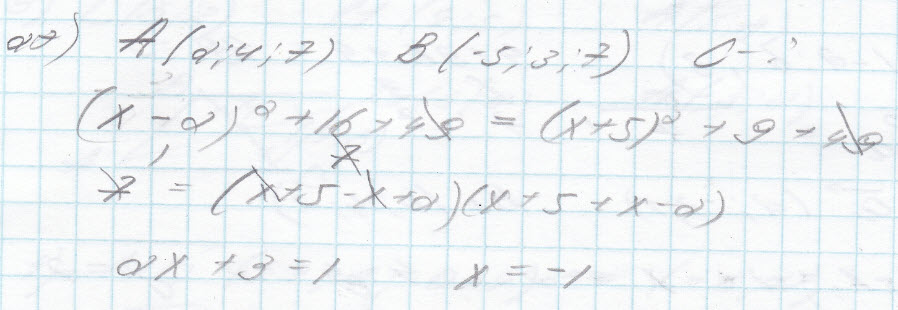 27) A(2;4;7) B(-5;3;7) C-?
(x-2)² + 16 + 49 = (x+5)² + 9 + 49
7
7 = (x+5-x+2)(x+5+x-2)
2x + 3 = 1 x = -1